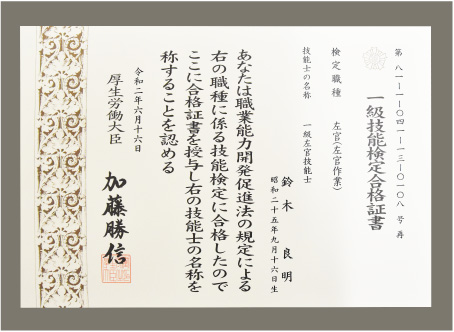 第八一-一-〇四一-一三-〇一〇八号再
一級技能検定合格証書
検定職種 左官(左官作業)
技能士の名称 一級左官技能士
鈴木 良明
昭和二十五年九月十六日生
あなたは職業能力開発促進法の規定による
右の職種に係る技能検定に合格したので
ここに合格証書を授与し右の技能士の名称を
称することを認める
令和二年六月十六日
厚生労働大臣
加藤勝信